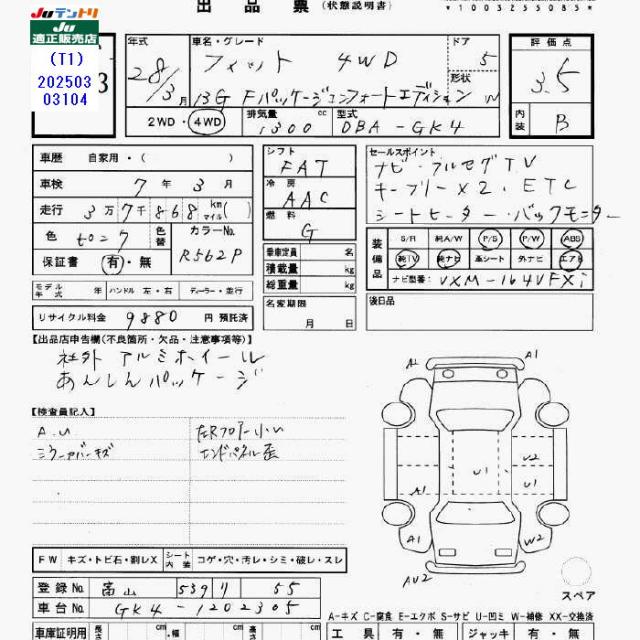 出品票 (状態説明書)
*1003255085*
Juテントリ
Ju
適正販売店
(T1)
202503
03104
3
年式 28/3月
車名・グレード フィット 4WD
13G Fパッケージコンフォートエディション
ドア 5
形状 W
2WD・4WD 排気量 1300 cc 型式 DBA-GK4
評価点 3.5
内装 B
車歴 自家用・( )
車検 7年 3月
走行 3万7千868 km マイル ( )
色 色替 カラーNo. R562P
保証書 有・無
シフト FAT
冷房 AAC
燃料 G
セールスポイント
ナビ・フルセグTV
キーフリー×2. ETC
シートヒーター・バックモニター
装備品 S/R 純A/W P/S P/W ABS
純TV 純ナビ 革シート 外ナビ エアB
ナビ型番: VXM-164VFXi
乗車定員 名
積載量 kg
総重量 kg
名変期限 月 日
後日品
モデル年式 年 ハンドル 左・右 ディーラー・並行
リサイクル料金 9880 円 預託済
【出品店申告欄(不良箇所・欠品・注意事項等)】
社外アルミホイール
あんしんパッケージ
【検査員記入】
A.U
ミラーカバーキズ
エンドパネル歪
A1
A1
U1
U1
A1
A1
W2
AU2
スペア
FW キズ・トビ石・割レX シート内装 コゲ・穴・汚レ・シミ・破レ・スレ
登録No. 富山 539 り 55
車台No. GK4-1202305
A-キズ C-腐食 E-エクボ S-サビ U-凹ミ W-補修 XX-交換済
車庫証明用 長さ cm 幅 cm 高さ cm 工具 有・無 ジャッキ 有・無